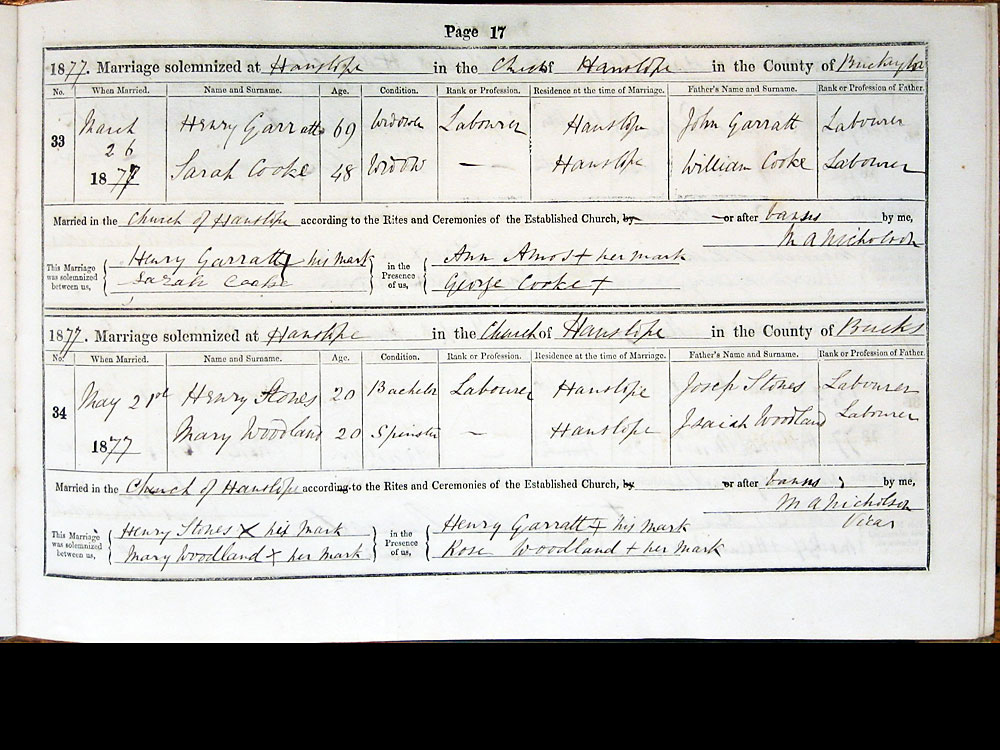 Page 17
1877. Marriage solemnized at Hanslope in the Church of Hanslope in the County of
No. When Married. Name and Surname. Age. Condition. Rank or Profession. Residence at the time of Marriage. Father's Name and Surname. Rank or Profession of Father.
March Henry Garratt 69 Widower Labourer Hanslope John Garratt Labourer
33 26
1877 Sarah Cooke 48 Widow — Hanslope William Cooke Labourer
Married in the Church of Hanslope according to the Rites and Ceremonies of the Established Church, by or after banns by me,
M A Nicholson
This Marriage was solemnized between us, Henry Garratt his mark in the Presence of us, Ann Amos + her mark
Sarah Cooke George Cooke +
1877. Marriage solemnized at Hanslope in the Church of Hanslope in the County of Bucks
No. When Married. Name and Surname. Age. Condition. Rank or Profession. Residence at the time of Marriage. Father's Name and Surname. Rank or Profession of Father.
May 21st Henry Stones 20 Bachelor Labourer Hanslope Joseph Stones Labourer
34
1877 Mary Woodland 20 Spinster — Hanslope Isaiah Woodland Labourer
Married in the Church of Hanslope according to the Rites and Ceremonies of the Established Church, by or after banns by me,
M A Nicholson
Vicar
This Marriage was solemnized between us, Henry Stones X his mark in the Presence of us, Henry Garratt + his mark
Mary Woodland + her mark Rose Woodland + her mark